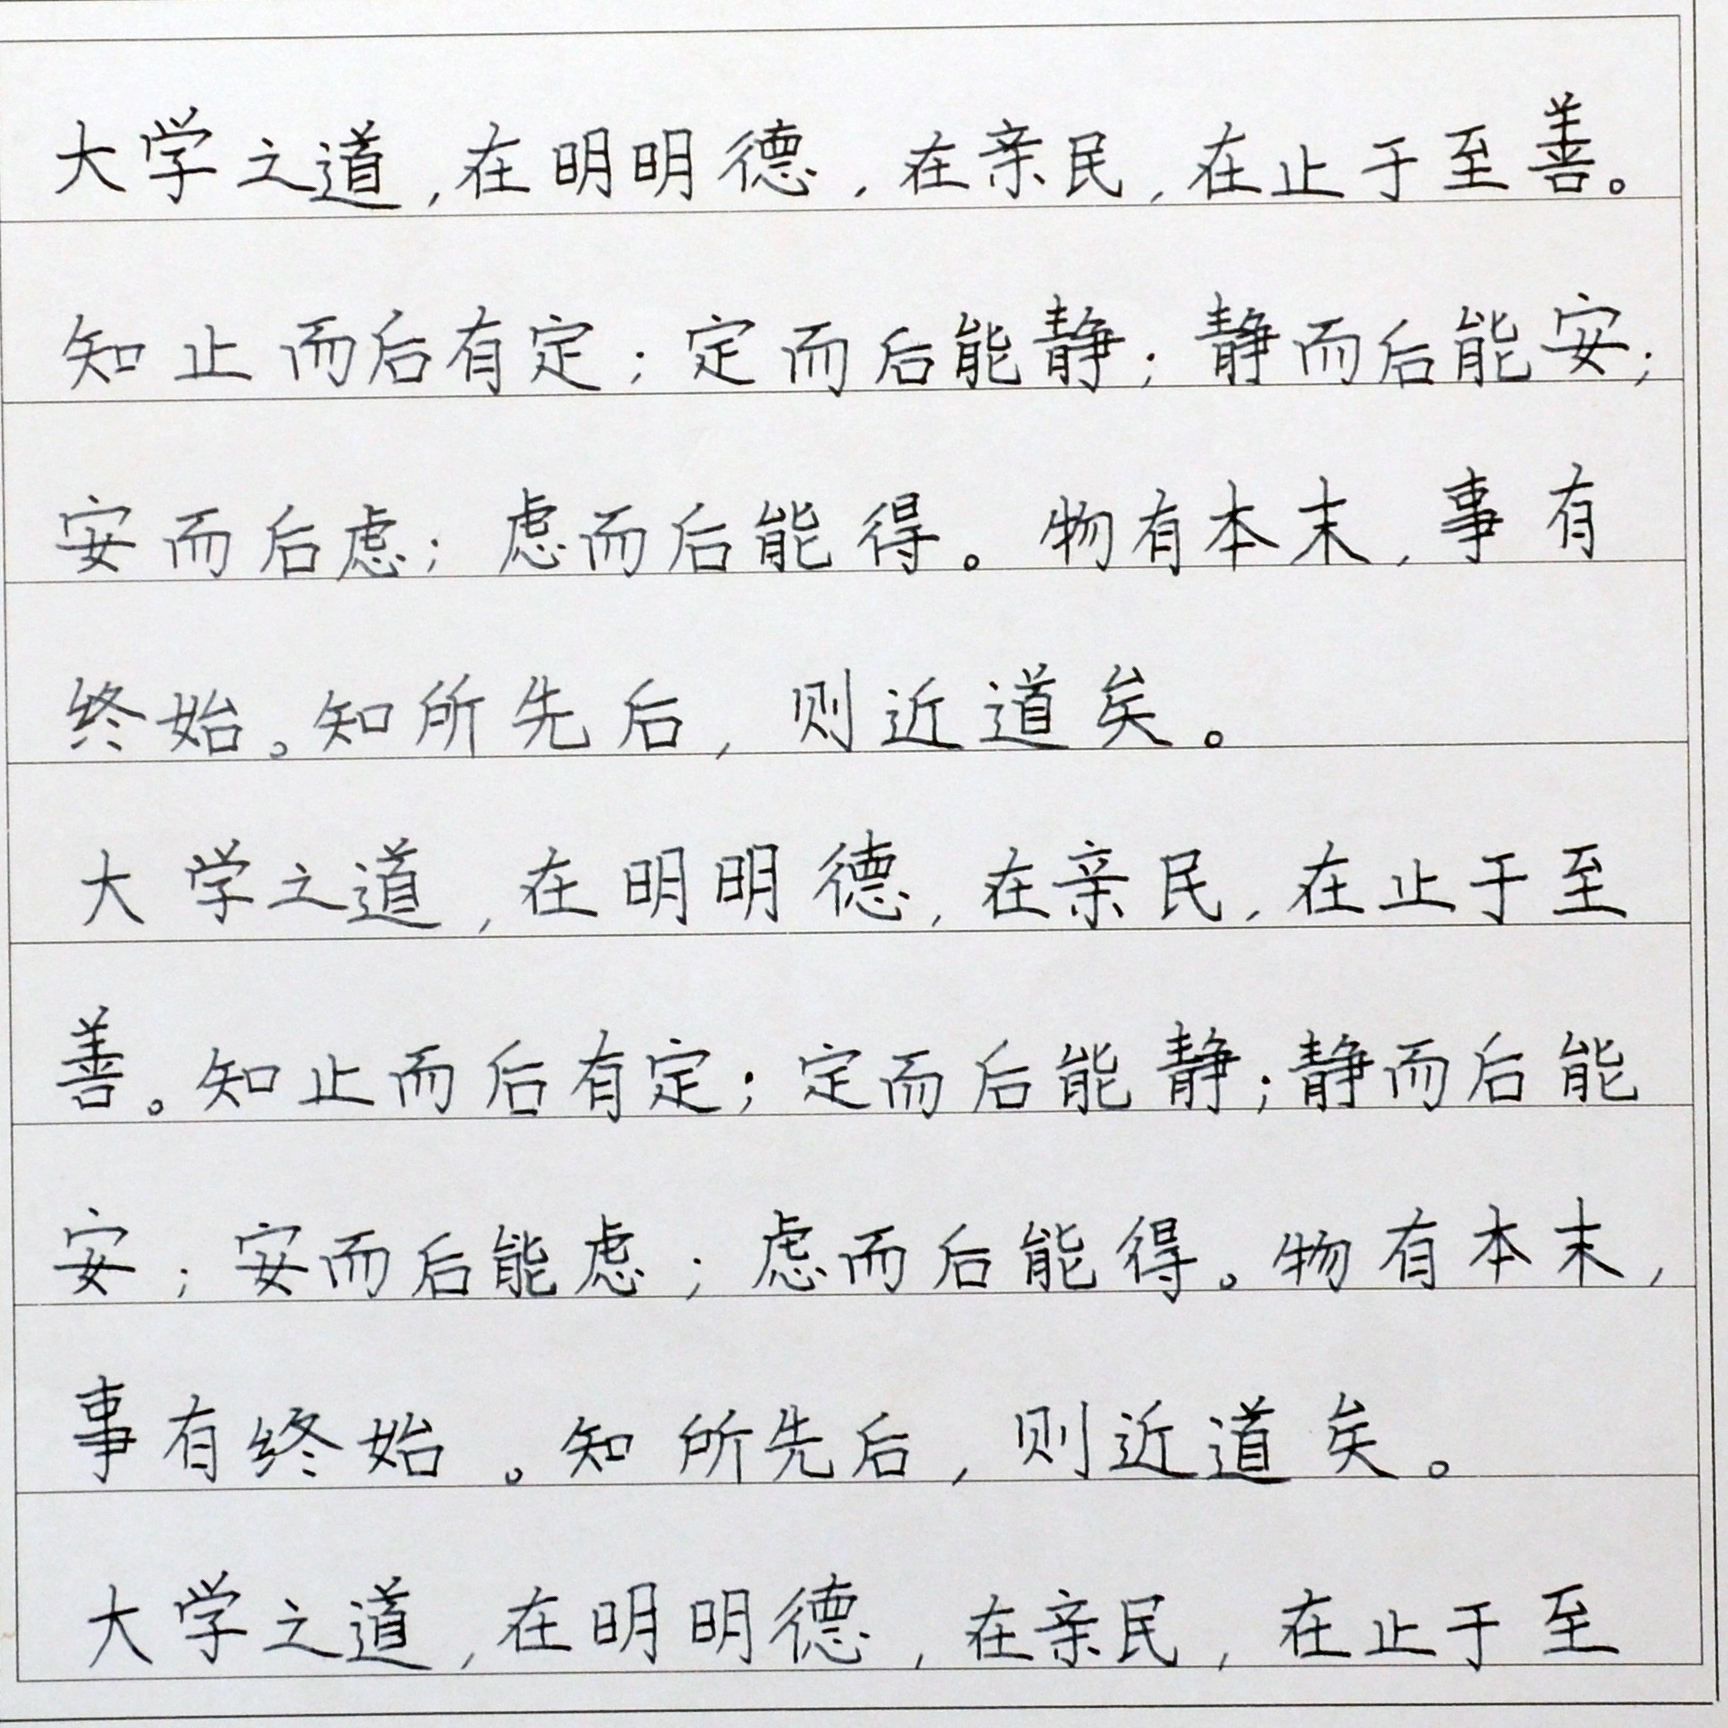 大学之道,在明明德,在亲民,在止于至善。
知止而后有定;定而后能静;静而后能安;
安而后虑;虑而后能得。物有本末,事有
终始。知所先后,则近道矣。
大学之道,在明明德,在亲民,在止于至
善。知止而后有定;定而后能静;静而后能
安;安而后能虑;虑而后能得。物有本末,
事有终始。知所先后,则近道矣。
大学之道,在明明德,在亲民,在止于至